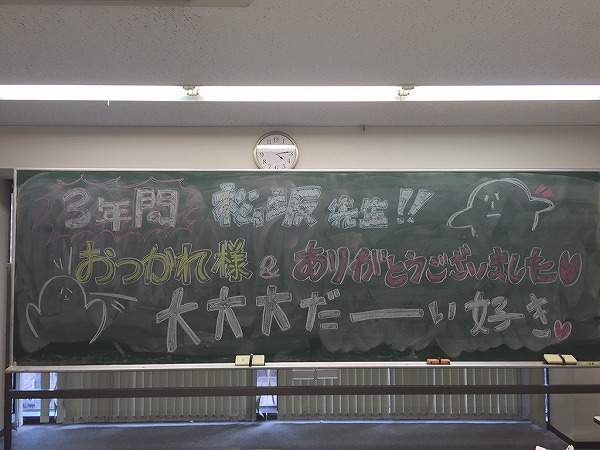 3年間 松坂 先生!!
おつかれ様 & ありがとうございました
大大大だーい好き